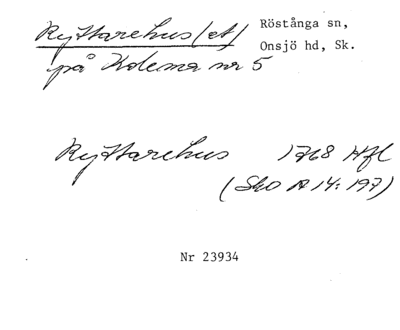 Ryttarehus (et) Röstånga sn,
Onsjö hd, Sk.
på Kolema nr 5
Ryttarehus 1768 Hfl
(Sko A 14: 197)
Nr 23934